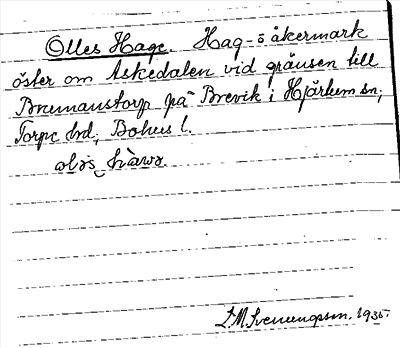 Olles Hage. Hag- o åkermark
öster om Askedalen vid gränsen till
Brumanstorp på Brevik i Hjärtum sn,
Torpe hd, Bohus l.
L.M. Svenungsson. 1935.